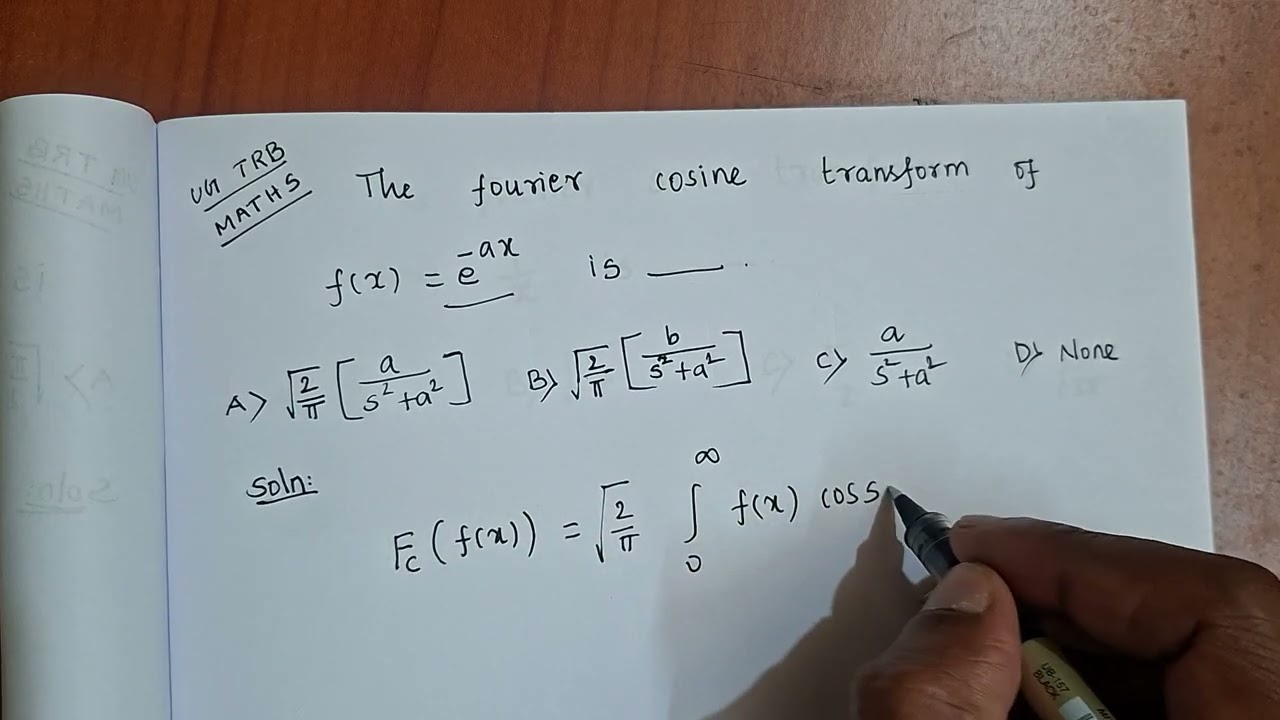 UG TRB
MATHS
The fourier cosine transform of
f(x) = e^{-ax} is ___ .
A) √(2/π) [a/(s²+a²)] B) √(2/π) [b/(s²+a²)] C) a/(s²+a²) D) None
Soln:
F_c(f(x)) = √(2/π) ∫_0^∞ f(x) cos s
UB-157
BLACK